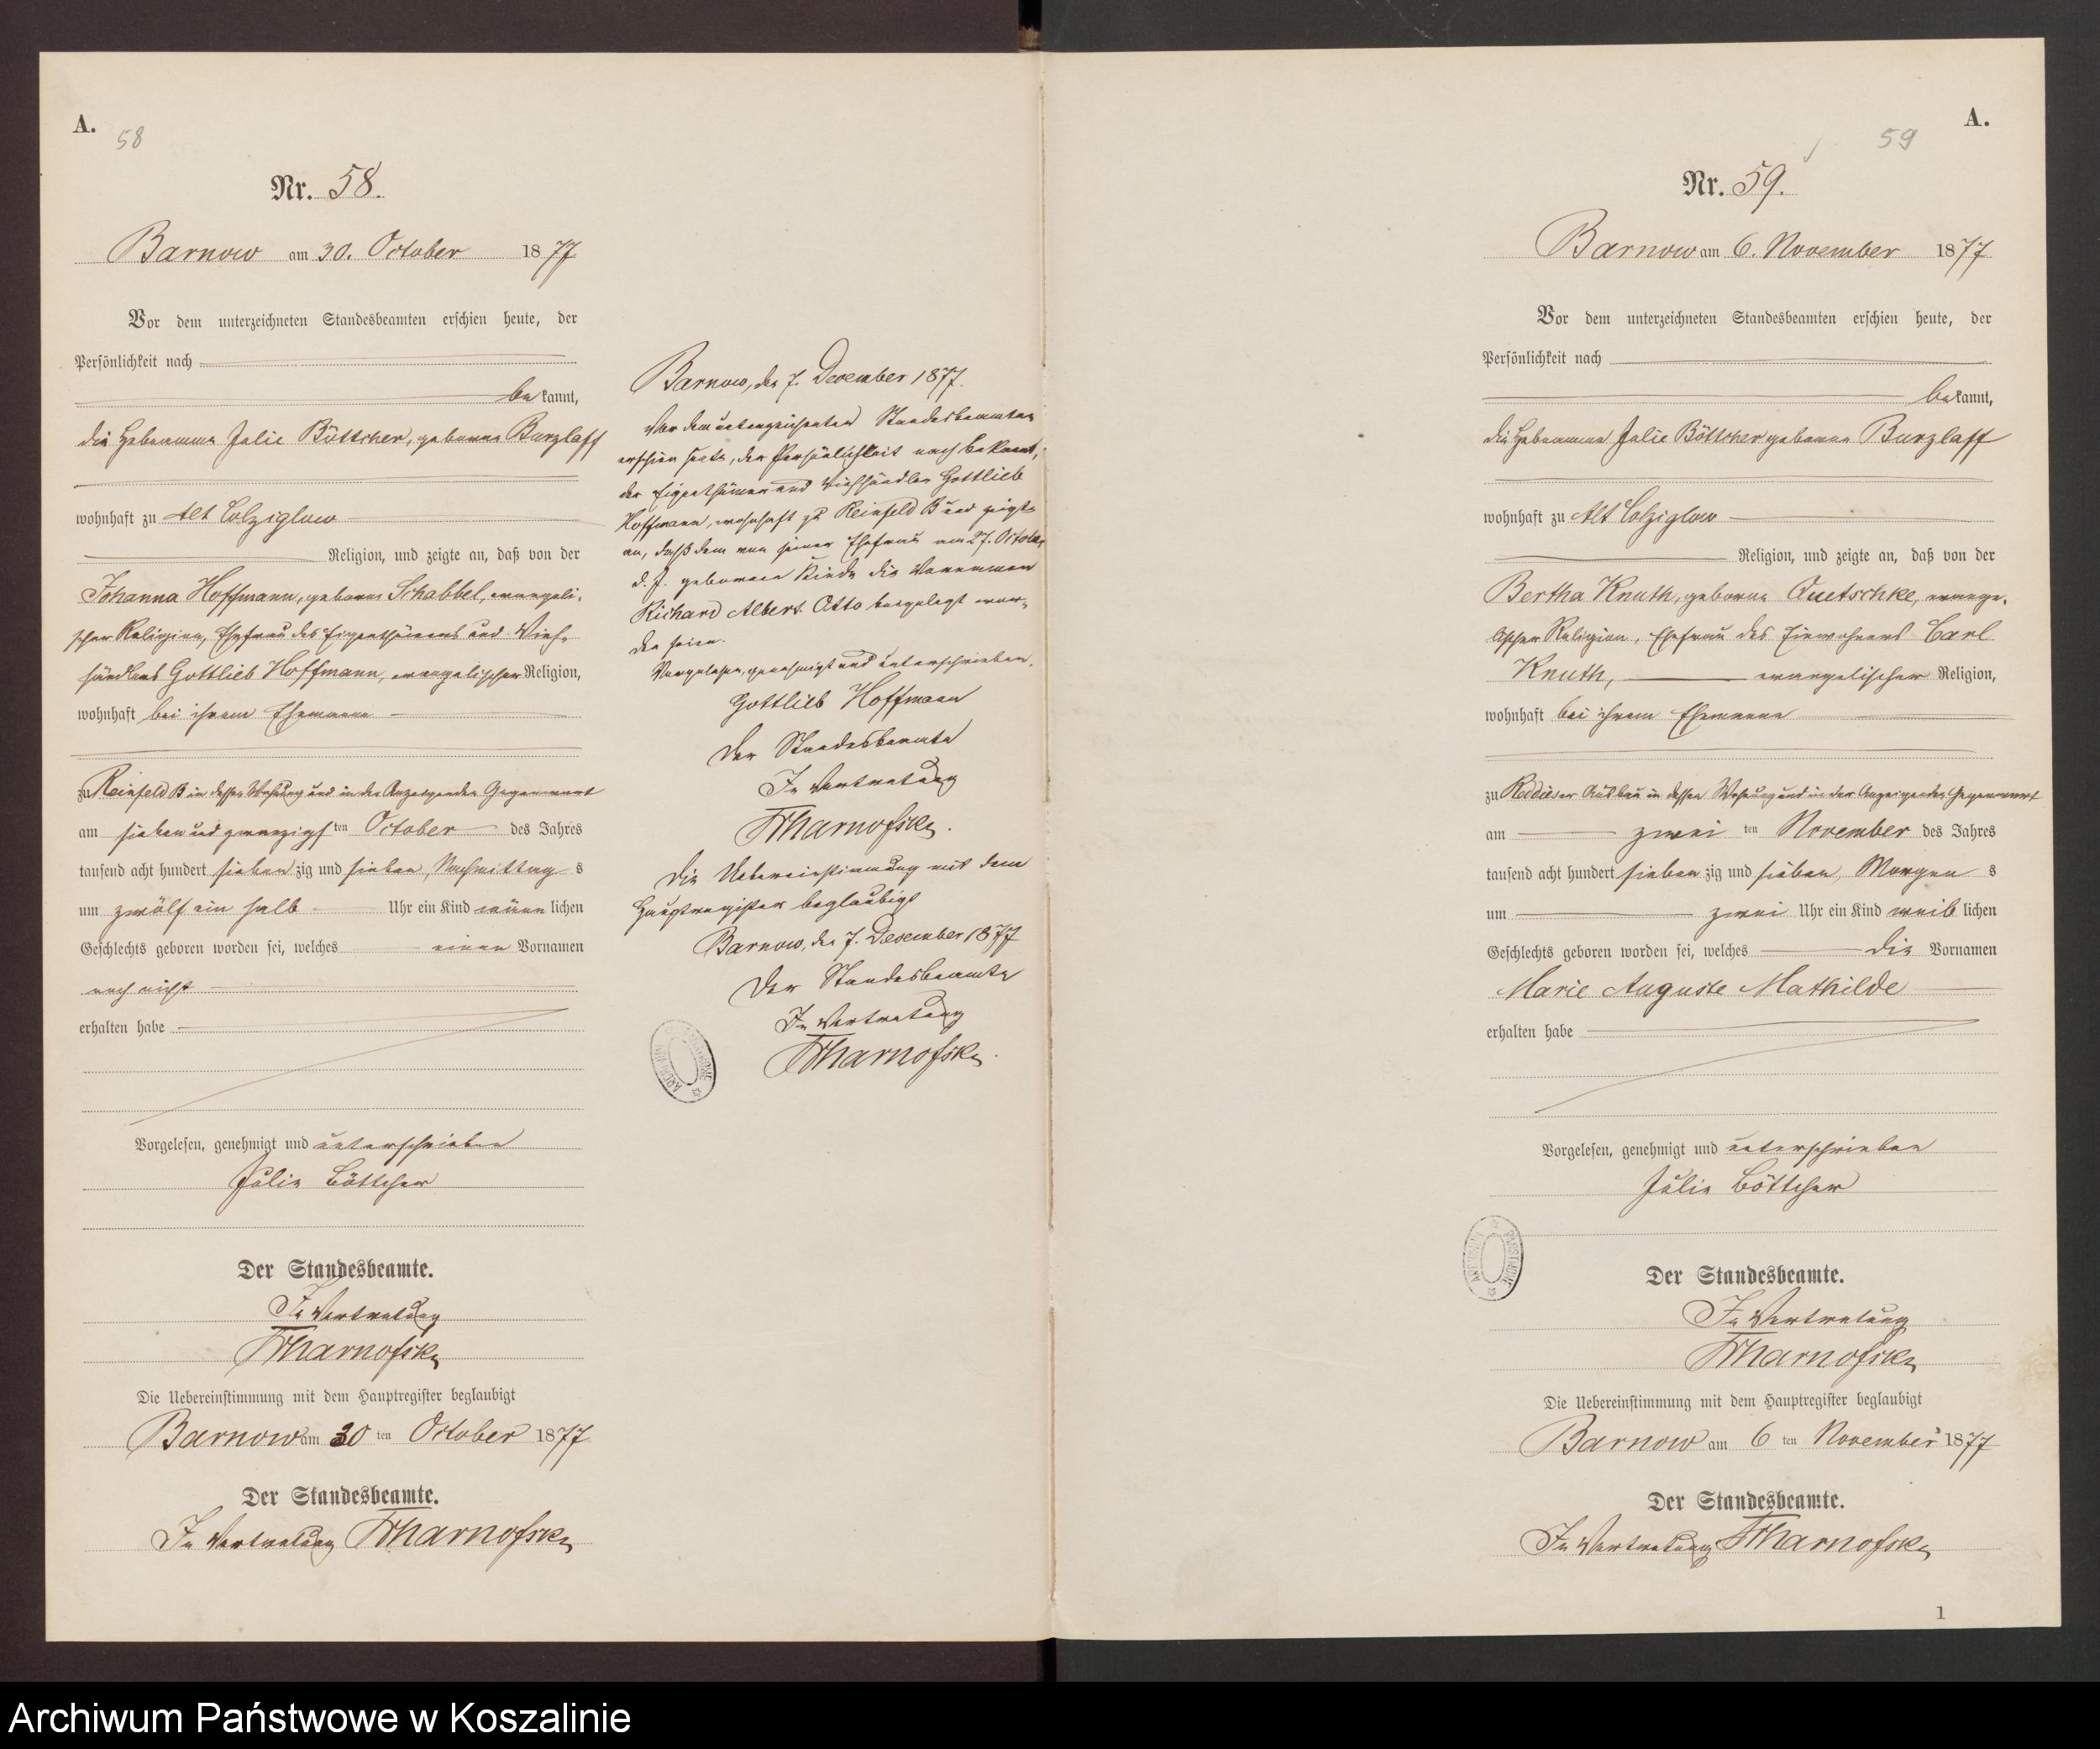 A.
58
Nr. 58.
Barnow am 30. October 1877
Vor dem unterzeichneten Standesbeamten erschien heute, der
Persönlichkeit nach
bekannt,
die Hebeamme Julie Böttcher, geborne Burzlaff
wohnhaft zu Alt Colziglow
Religion, und zeigte an, daß von der
Johanna Hoffmann, geborne Schabbel, evangeli-
scher Religion, Ehefrau des Eigenthümers und Vieh-
händlers Gottlieb Hoffmann, evangelischer Religion,
wohnhaft bei ihrem Ehemanne
zu Reinfeld B in dessen Wohnung und in der Anzeigenden Gegenwart
am sieben und zwanzigsten October des Jahres
tausend acht hundert siebenzig und sieben, Nachmittags
um zwölf ein halb Uhr ein Kind männlichen
Geschlechts geboren worden sei, welches einen Vornamen
noch nicht
erhalten habe
Vorgelesen, genehmigt und unterschrieben
Julie Böttcher
Der Standesbeamte.
In Vertretung
Die Uebereinstimmung mit dem Hauptregister beglaubigt
Barnow am 30ten October 1877
Der Standesbeamte.
In Vertretung
Barnow, den 7. December 1877.
Vor dem unterzeichneten Standesbeamten
erschien heute, der Persönlichkeit nach bekannt,
der Eigenthümer und Viehhändler Gottlieb
Hoffmann, wohnhaft zu Reinfeld B und zeigte
an, daß dem von seiner Ehefrau am 27. October
d. J. geborenen Kinde die Vornamen
Richard Albert Otto beigelegt wor-
den seien.
Vorgelesen, genehmigt und unterschrieben.
Gottlieb Hoffmann
Der Standesbeamte
In Vertretung
Die Uebereinstimmung mit dem
Hauptregister beglaubigt
Barnow, den 7. December 1877
Der Standesbeamte
In Vertretung
A.
59
Nr. 59.
Barnow am 6. November 1877
Vor dem unterzeichneten Standesbeamten erschien heute, der
Persönlichkeit nach
bekannt,
die Hebeamme Julie Böttcher geborne Burzlaff
wohnhaft zu Alt Colziglow
Religion, und zeigte an, daß von der
Bertha Knuth, geborne Quetschke, evange-
lischer Religion, Ehefrau des Einwohners Carl
Knuth, evangelischer Religion,
wohnhaft bei ihrem Ehemanne
zu Reddieser Ausbau in dessen Wohnung und in der Anzeigenden Gegenwart
am zweiten November des Jahres
tausend acht hundert siebenzig und sieben, Morgens
um zwei Uhr ein Kind weiblichen
Geschlechts geboren worden sei, welches die Vornamen
Marie Auguste Mathilde
erhalten habe
Vorgelesen, genehmigt und unterschrieben
Julie Böttcher
Der Standesbeamte.
In Vertretung
Die Uebereinstimmung mit dem Hauptregister beglaubigt
Barnow am 6ten November 1877
Der Standesbeamte.
In Vertretung
1
Archiwum Państwowe w Koszalinie